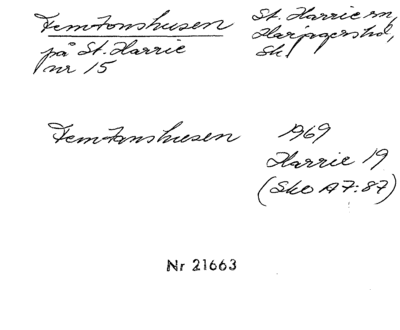 Femtonshusen
på St. Harrie
nr 15
St. Harrie sn,
Harjagers hd,
Sk.
Femtonshusen
1969
Harrie 19
(Sko A7:87)
Nr 21663